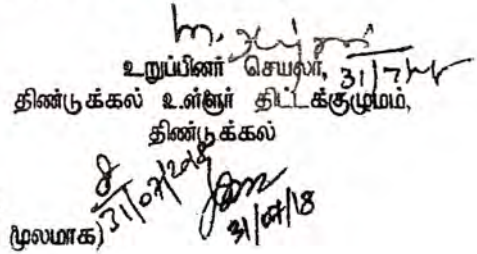 உறுப்பினர் செயலர், 31/7/18
திண்டுக்கல் உள்ளூர் திட்டக்குழுமம்,
திண்டுக்கல்
31/07/2018
31/07/18
மூலமாக)